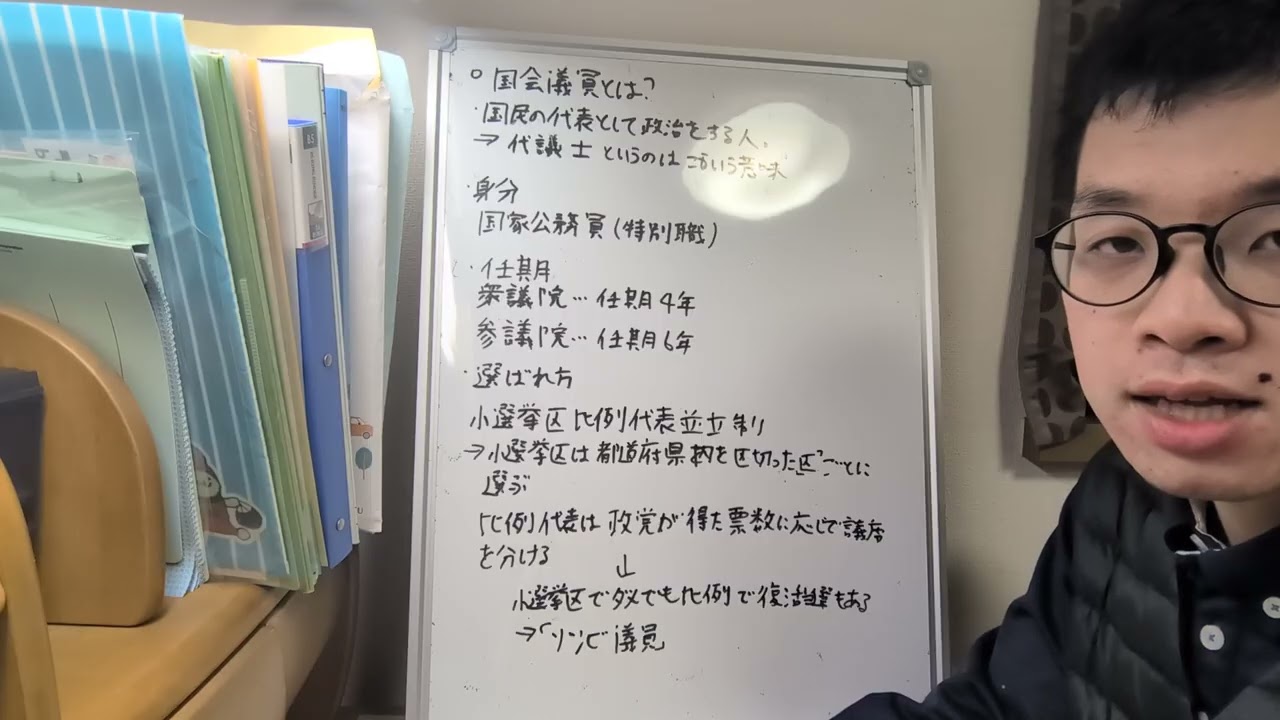 ○ 国会議員とは?
・国民の代表として政治をする人。
→ 代議士 というのは こういう意味
・身分
国家公務員(特別職)
・任期
衆議院… 任期4年
参議院… 任期6年
・選ばれ方
小選挙区比例代表並立制
→小選挙区は都道府県内を区切った「区」ごとに
選ぶ
比例代表は政党が得た票数に応じて議席
を分ける
↓
小選挙区でダメでも比例で復活当選もある
→「ゾンビ議員